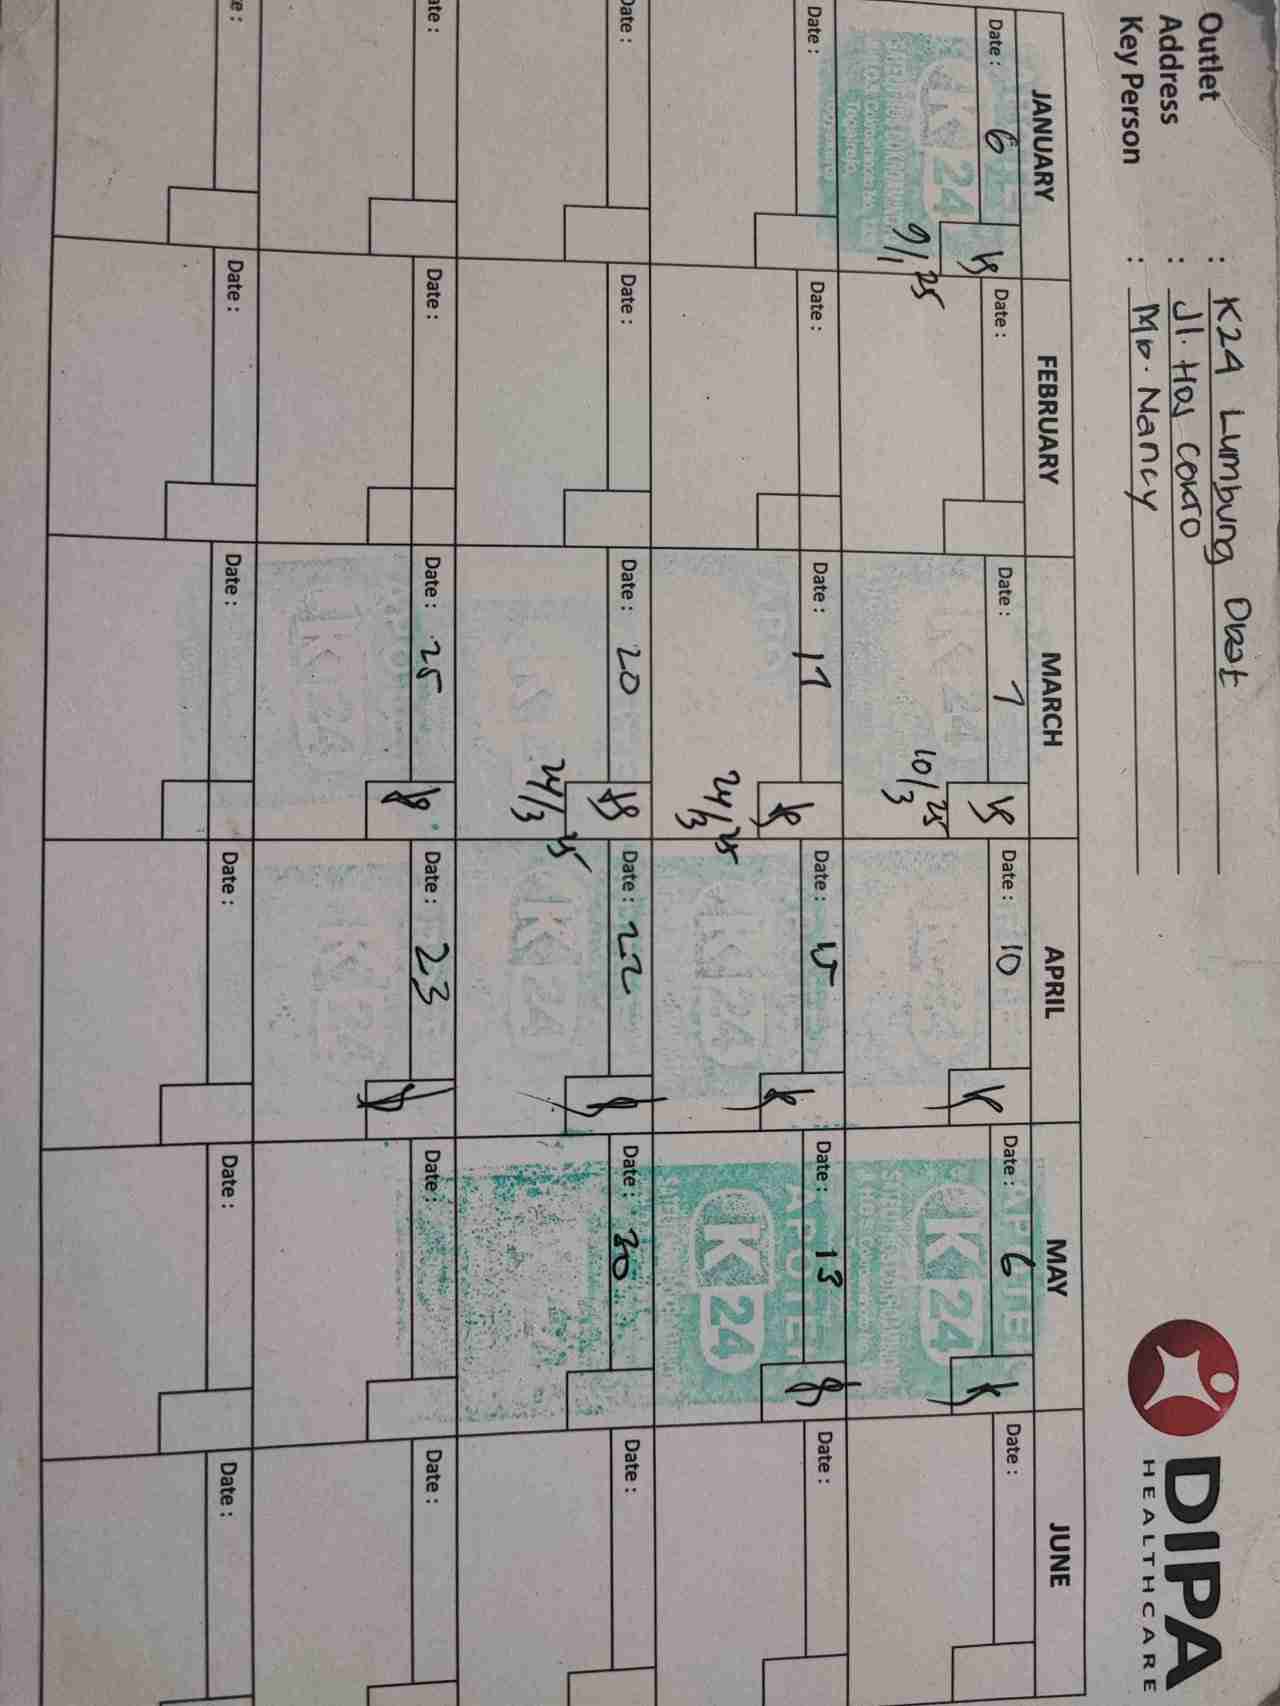 Outlet : K24 Lumbung Obat
Address : Jl. Hos Cokro
Key Person : Mb. Nancy
DIPA
HEALTHCARE
JANUARY FEBRUARY MARCH APRIL MAY JUNE
Date : 6 Date : Date : 7 Date : 10 Date : 6 Date :
K24 9/1 25 K24 10/3 25 K24
Date : Date : Date : 17 Date : 15 Date : 13 Date :
24/3 25 K24 APOTEK K24
Date : Date : Date : 20 Date : 22 Date : 20 Date :
24/3 25 K24
Date : Date : Date : 25 Date : 23 Date : Date :
K24 K24
Date : Date : Date : Date : Date : Date :